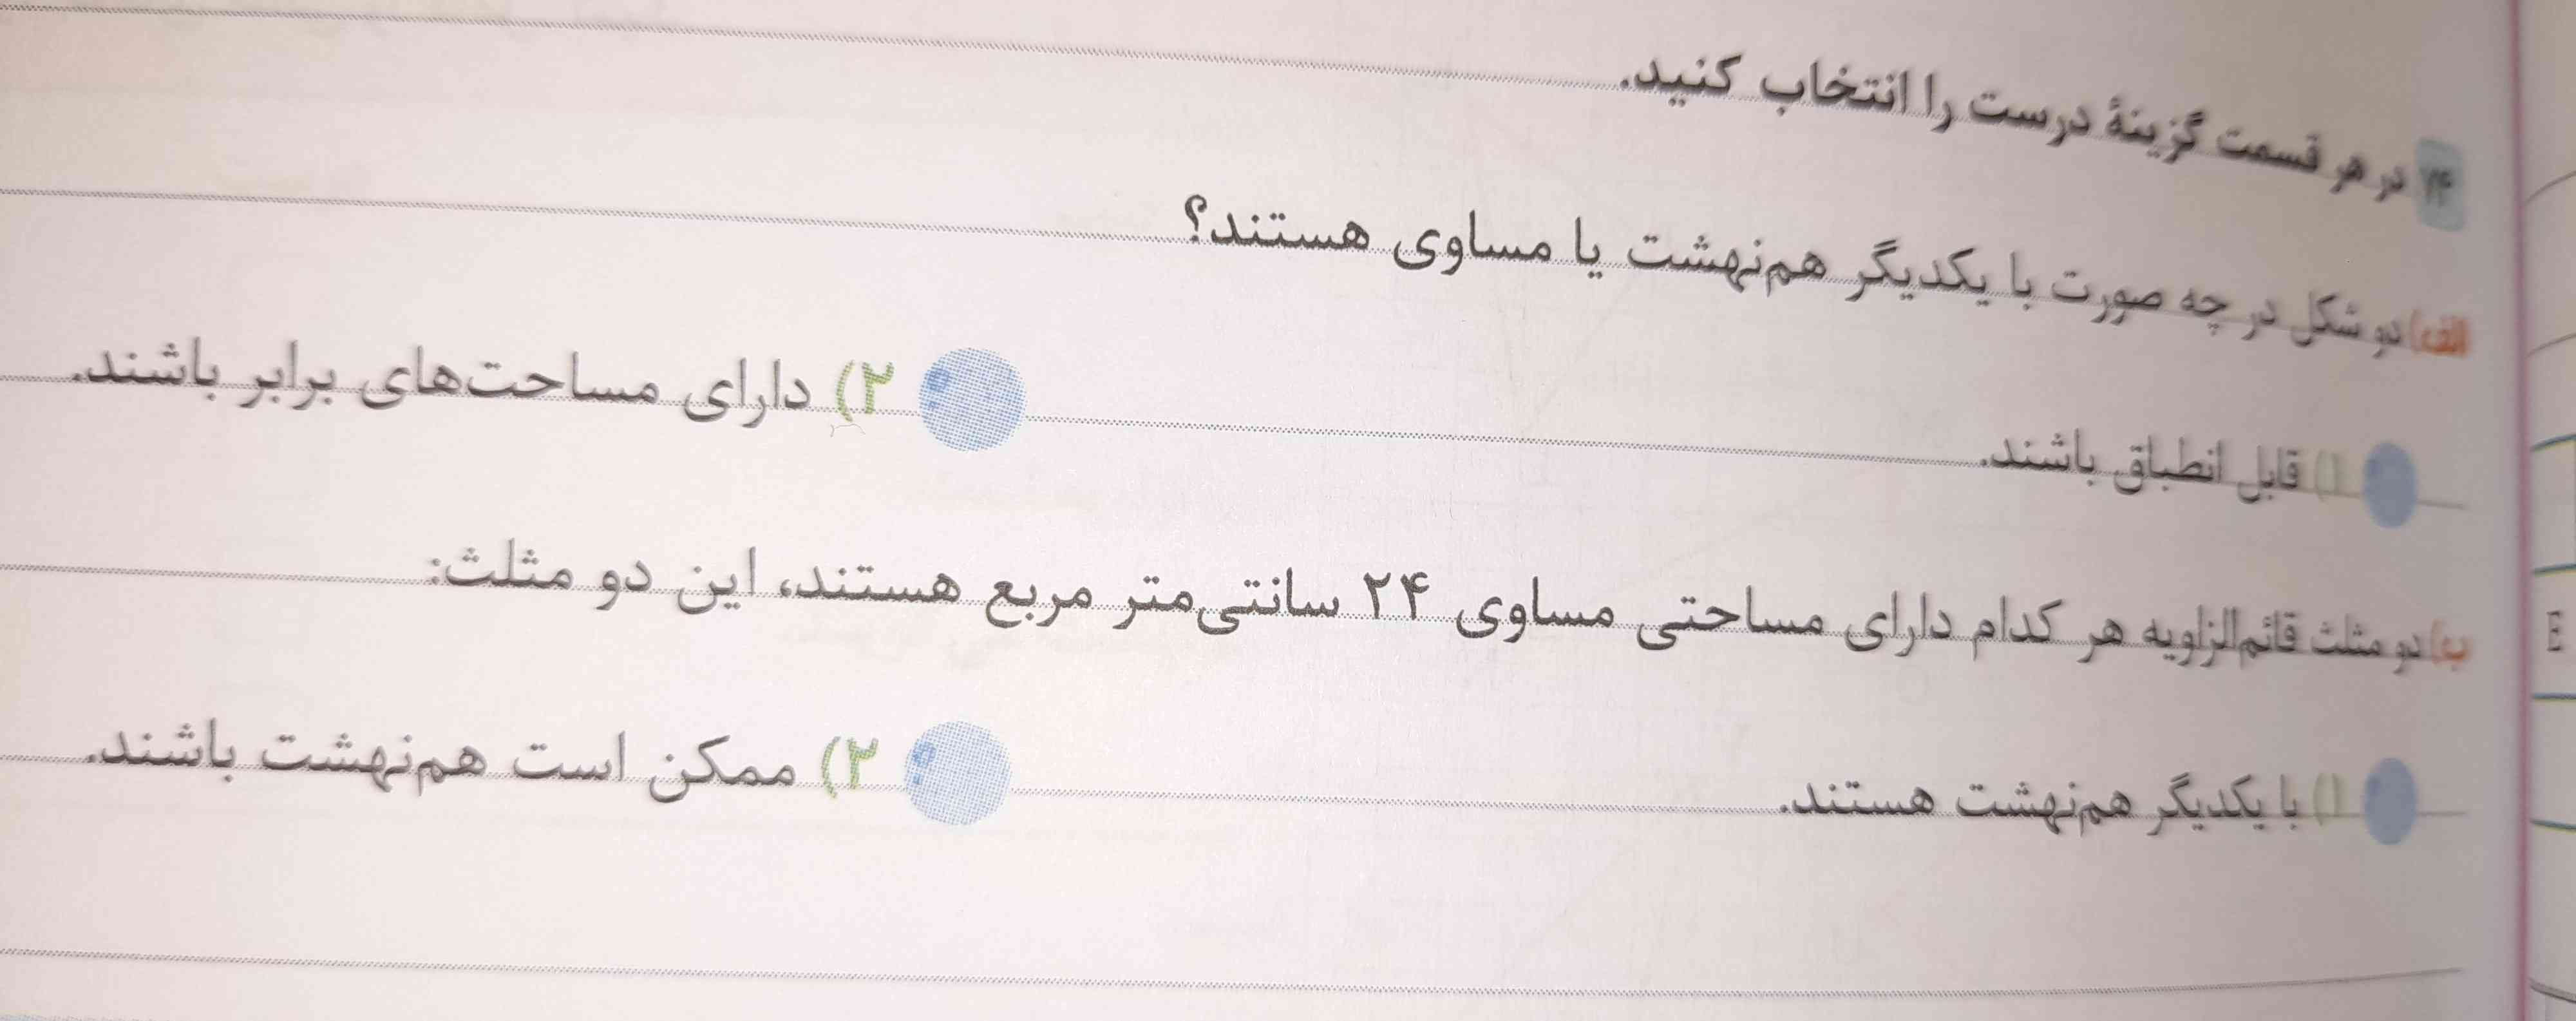 ۷۴ در هر قسمت گزینهٔ درست را انتخاب کنید.
الف) دو شکل در چه صورت با یکدیگر هم‌نهشت یا مساوی هستند؟
۱) قابل انطباق باشند. ۲) دارای مساحت‌های برابر باشند.
ب) دو مثلث قائم‌الزاویه هر کدام دارای مساحتی مساوی ۲۴ سانتی‌متر مربع هستند، این دو مثلث:
۱) با یکدیگر هم‌نهشت هستند. ۲) ممکن است هم‌نهشت باشند.
E